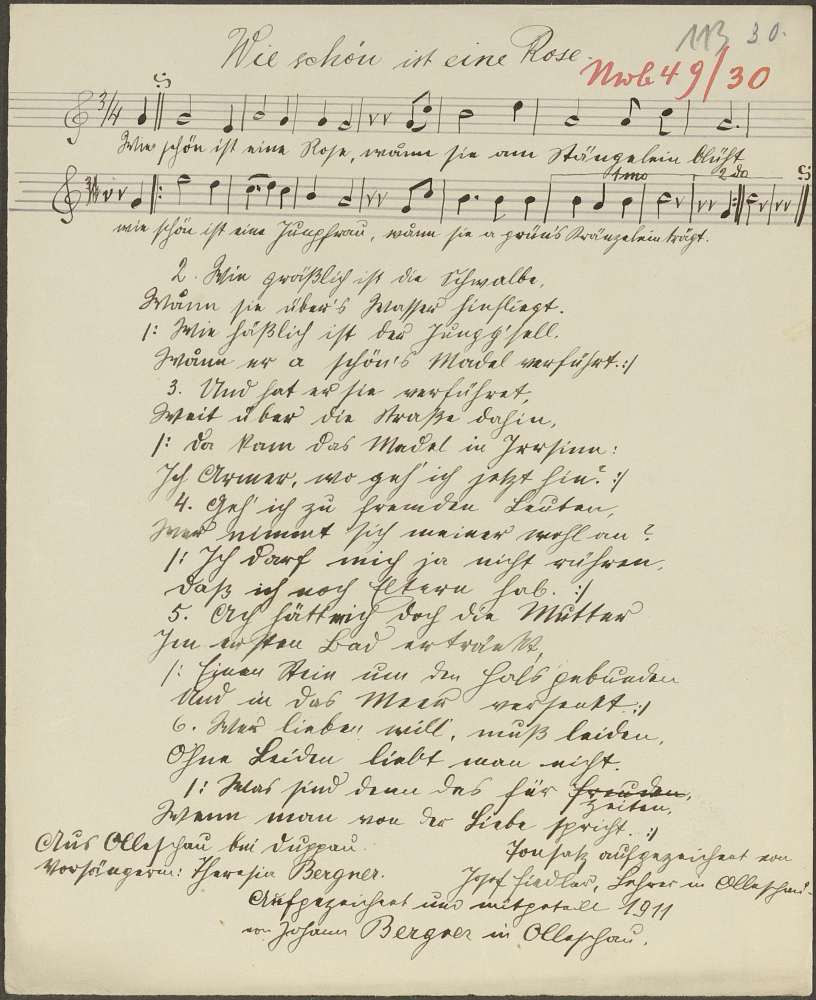 113 30.
Wie schön ist eine Rose.
Nwb 49/30
3/4
Wie schön ist eine Rose, wånn sie am Stångelein blüht
1mo 2do
wie schön ist eine Jungfrau, wånn sie a grün's Kränzelein trägt.
2. Wie gräßlich ist die Schwalbe,
Wånn sie über's Wasser hinfliegt.
|: Wie häßlich ist der Jungg'sell.
Wånn er a schön's Madel verführt. :|
3. Und hat er sie verführet,
Weit über die Straße dahin,
|: Da kam das Madel in Irrsinn:
Ich Armer, wo geh' ich jetzt hin? :|
4. Geh' ich zu fremden Leuten,
Wer nimmt sich meiner wohl an?
|: Ich darf mich ja nicht rühren,
Daß ich noch Eltern hab. :|
5. Ach hätt mich doch die Mutter
Im ersten Bad ertränkt,
|: Einen Stein um den Hals gebunden
Und in das Meer versenkt. :|
6. Wer lieben will, muß leiden,
Ohne Leiden liebt man nicht.
|: Was sind denn das für freuden,
Zeiten,
Wenn man von der Liebe spricht. :|
Aus Olleschau bei Duppau.
Vorsängerin: Theresia Bergner.
Tonsatz aufgezeichnet von
Josef Fiedler, Lehrer in Olleschau.
Aufgezeichnet und mitgeteilt 1911
von Johann Bergner in Olleschau.